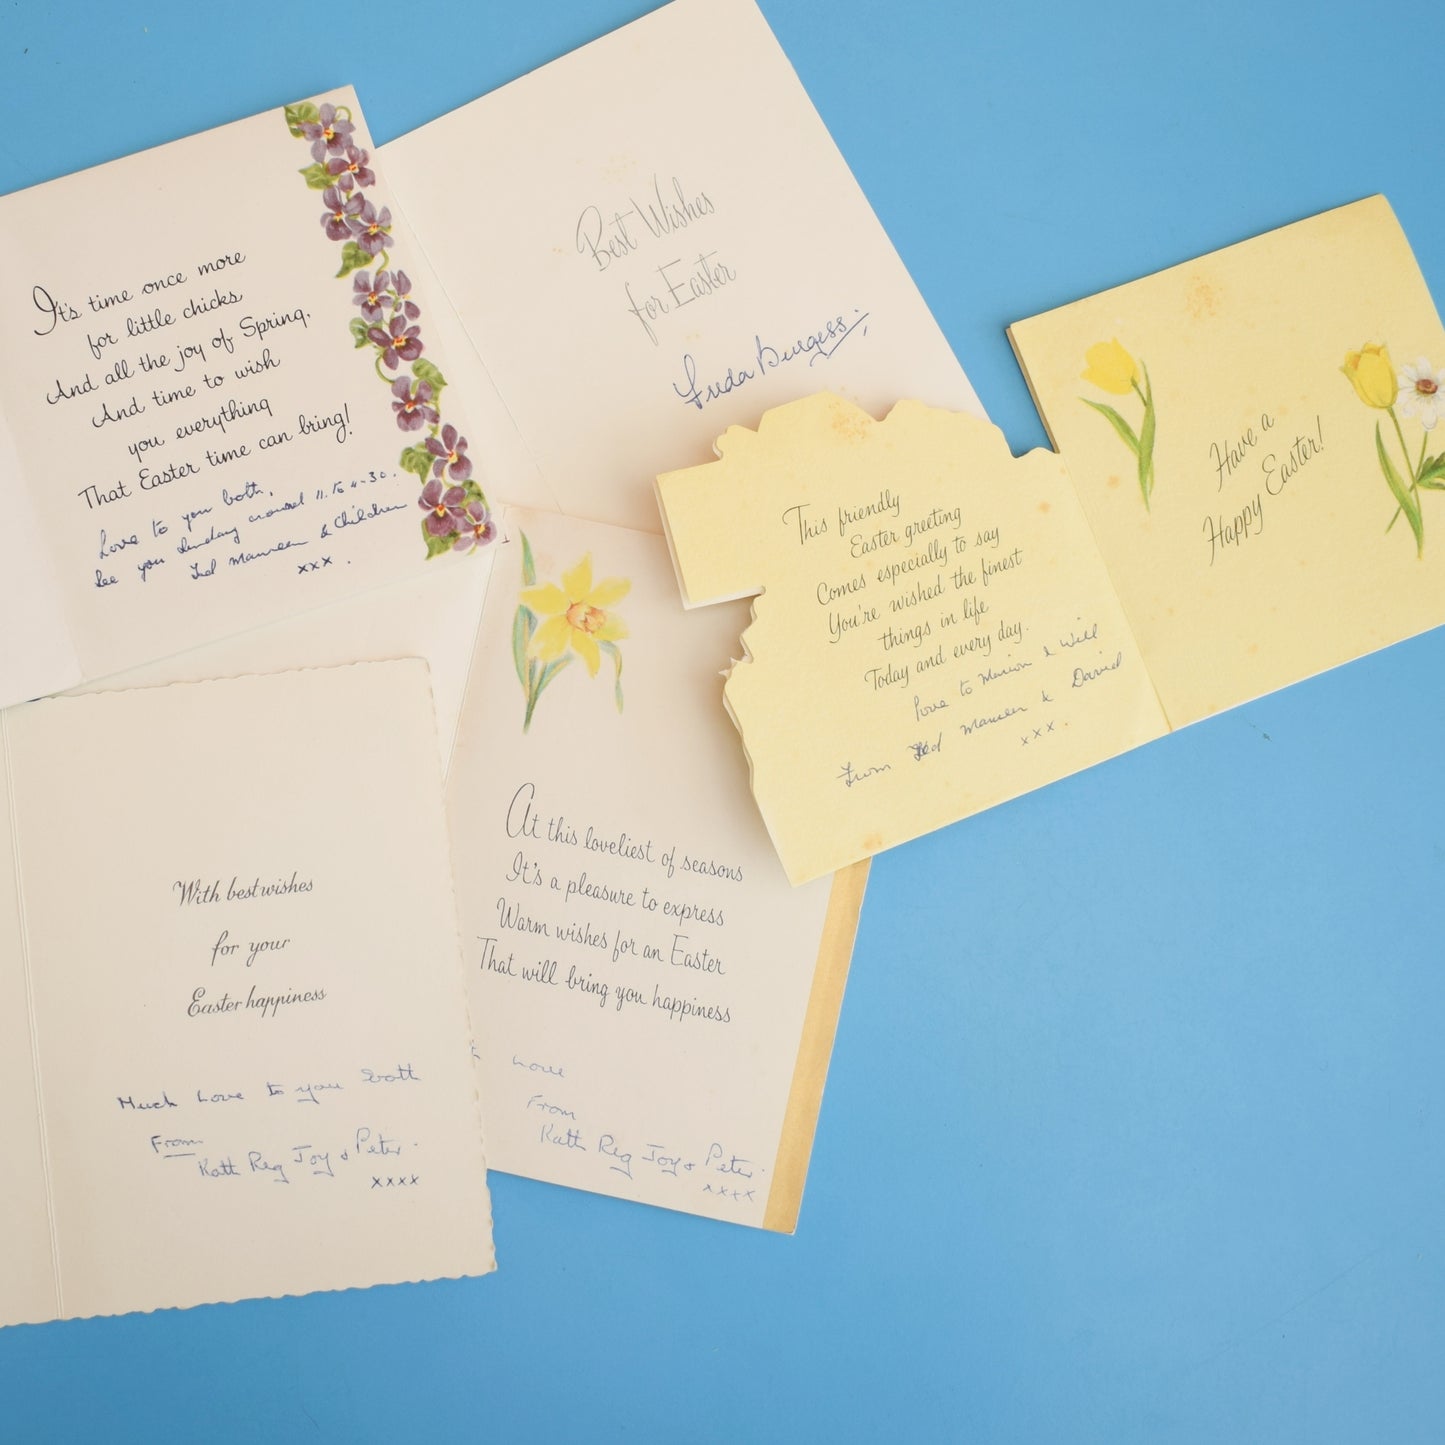 It's time once more
for little chicks
And all the joy of Spring,
And time to wish
you everything
That Easter time can bring!
Love to you both,
See you Sunday around 11. to 4-30.
Ted Maureen & Children
xxx.
Best Wishes
for Easter
Freda Burgess.
This friendly
Easter greeting
Comes especially to say
You're wished the finest
things in life
Today and every day.
Love to Marion & Will
From Ted Maureen & David
xxx.
Have a
Happy Easter!
With best wishes
for your
Easter happiness
Much Love to you both
From
Kath Reg Joy & Peter.
xxxx
At this loveliest of seasons
It's a pleasure to express
Warm wishes for an Easter
That will bring you happiness
Love
From
Kath Reg Joy & Peter.
xxxx